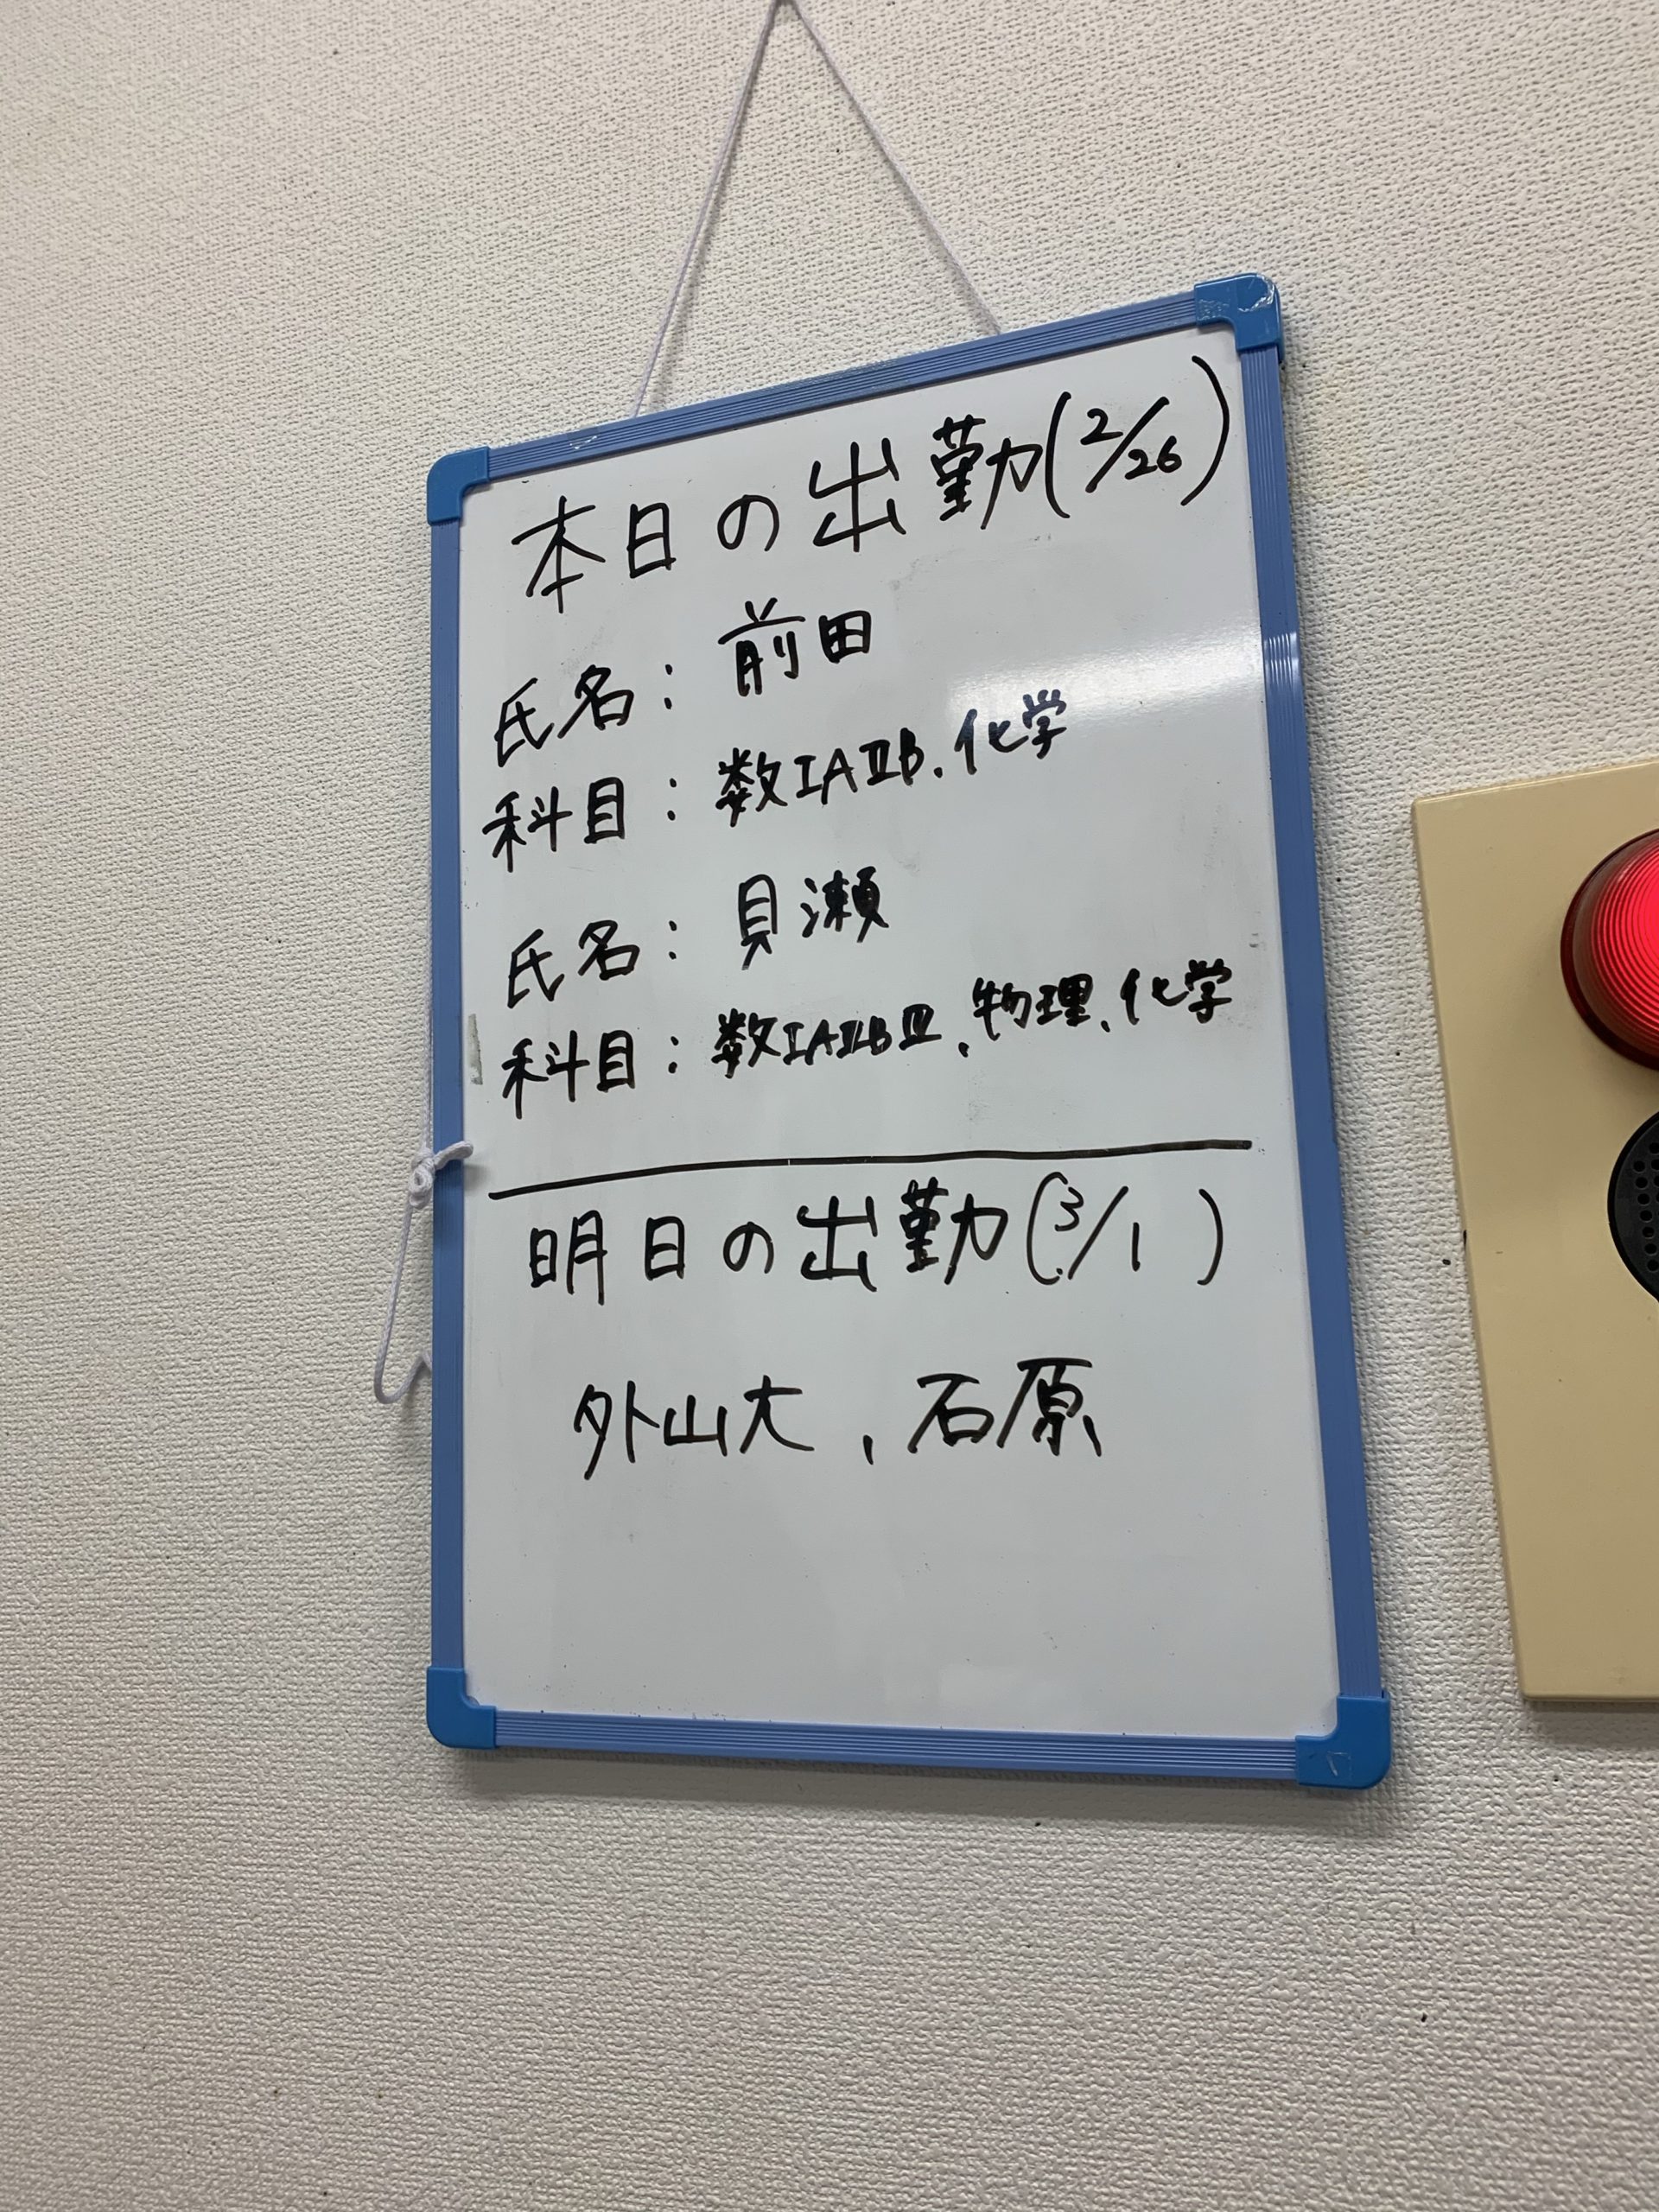 本日の出勤(2/26)
氏名: 前田
科目: 数ⅠAⅡB、化学
氏名: 貝瀬
科目: 数ⅠAⅡBⅢ、物理、化学
明日の出勤(3/1)
外山大、石原